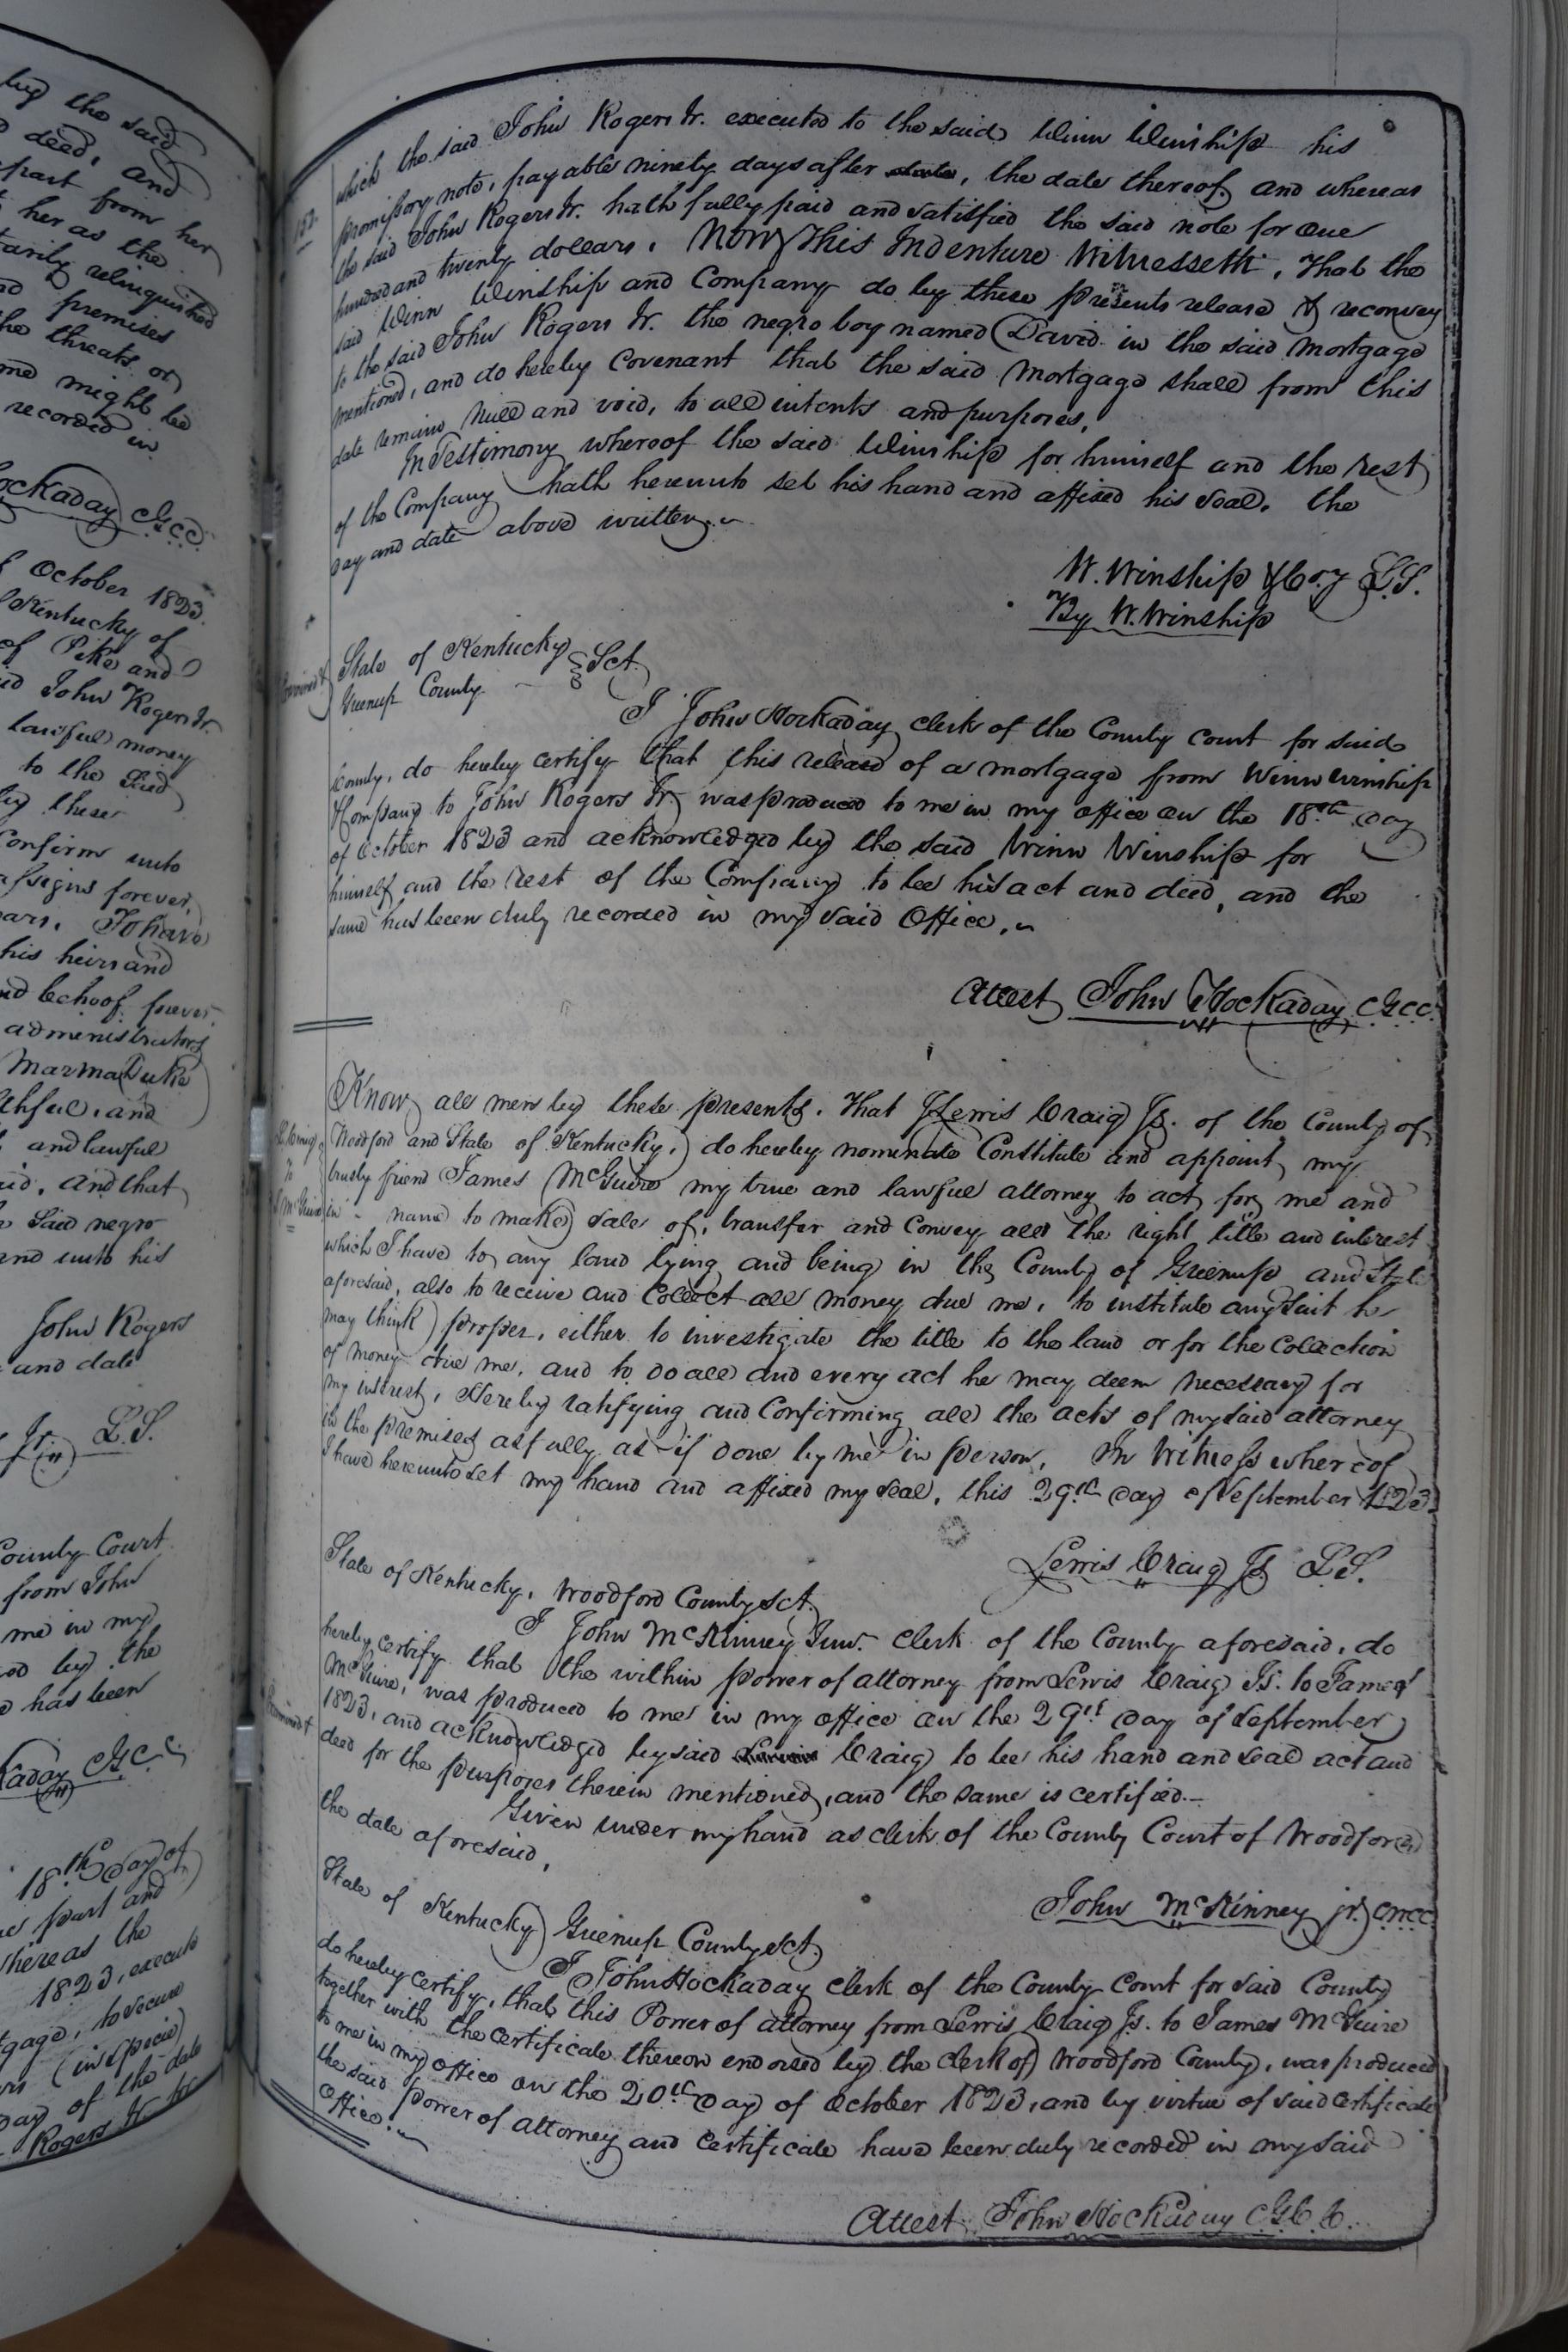 by the said
deed, and
part from her
her as the
tarily relinquished
premises
the threats or
me might be
recorded in
ockaday C.G.C.C.
October 1823
Kentucky of
of Pike and
John Rogers Jr.
lawful money
to the said
by these
Confirm unto
assigns forever,
ars. To have
his heirs and
nd behoof forever
administrators
Marmaduke
thful, and
and lawful
id. And that
said negro
and unto his
John Rogers
and date
Jr. L.S.
County Court
from John
me in my
by the
has been
kaday C.G.C.C.
18th day of
part and
Whereas the
1823, execute
tgage, to secure
(in specie)
day of the date
Rogers Jr. by
152.
which the said John Rogers Jr. executed to the said Winn Winship his
promissory note, payable ninety days after date, the date thereof, and whereas
the said John Rogers Jr. hath fully paid and satisfied the said note for one
hundred and twenty dollars. Now This Indenture Witnesseth, That the
said Winn Winship and Company do by these presents release & reconvey
to the said John Rogers Jr. the negro boy named David in the said mortgage
mentioned, and do hereby covenant that the said mortgage shall from this
date remain null and void, to all intents and purposes.
In Testimony whereof the said Winship for himself and the rest
of the Company hath hereunto set his hand and affixed his seal, the
day and date above written.
W. Winship & Coy L.S.
By W. Winship
State of Kentucky Sct.
Greenup County
I John Hockaday clerk of the County court for said
County, do hereby certify that this release of a mortgage from Winn Winship
& Company to John Rogers Jr. was produced to me in my office on the 18th day
of October 1823 and acknowledged by the said Winn Winship for
himself and the rest of the Company to be his act and deed, and the
same has been duly recorded in my said Office.
Attest John Hockaday C.G.C.C.
Know all men by these presents, that I Lewis Craig Js. of the County of
Woodford and State of Kentucky, do hereby nominate Constitute and appoint my
trusty friend James McGuire my true and lawful attorney to act for me and
in - name to make sale of, transfer and Convey all the right title and interest
which I have to any land lying and being in the County of Greenup and State
aforesaid, also to receive and Collect all money due me, to institute any suit he
may think proper, either to investigate the title to the land or for the Collection
of money due me, and to do all and every act he may deem necessary for
my interest, Hereby ratifying and Confirming all the acts of my said attorney
in the premises as fully as if done by me in person. In Witness whereof
I have hereunto set my hand and affixed my seal, this 29th day of September 1823.
Lewis Craig Js. L.S.
State of Kentucky, Woodford County Sct.
I John McKinney Jun. clerk of the County aforesaid, do
hereby certify that the within power of attorney from Lewis Craig Js. to James
McGuire, was produced to me in my office on the 29th day of September
1823, and acknowledged by said Craig to be his hand and seal act and
deed for the purposes therein mentioned, and the same is certified.-
Given under my hand as clerk of the County Court of Woodford
the date aforesaid,
John McKinney jr. C.W.C.C.
State of Kentucky Greenup County Sct.
I John Hockaday clerk of the County Court for said County
do hereby certify, that this Power of attorney from Lewis Craig Js. to James McGuire
together with the certificate thereon endorsed by the clerk of Woodford County, was produced
to me in my office on the 20th day of October 1823, and by virtue of said certificate
the said power of attorney and certificate have been duly recorded in my said
Office.
Attest John Hockaday C.G.C.C.